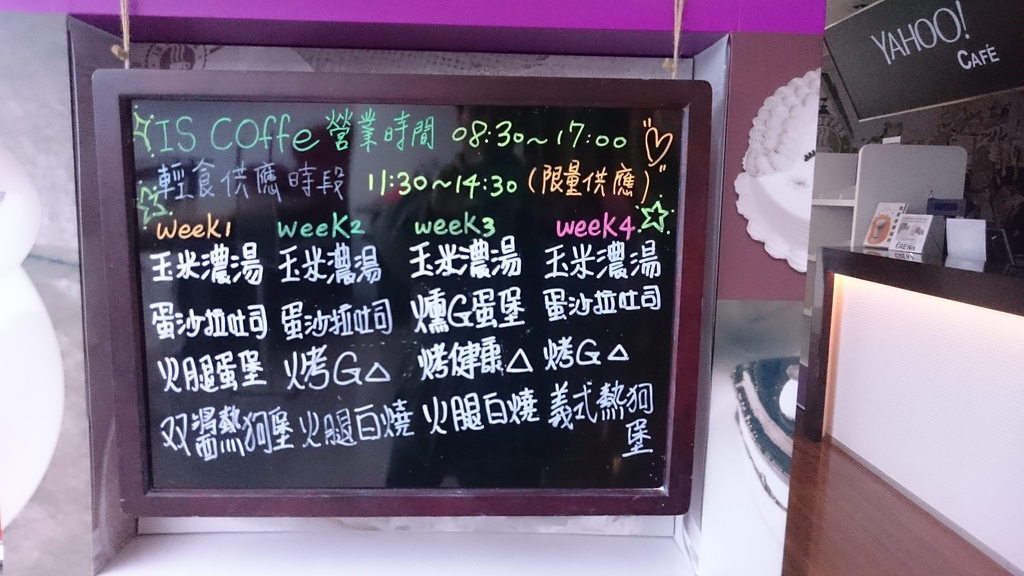 IS Coffe 營業時間 08:30~17:00
輕食供應時段 11:30~14:30 (限量供應)
week1 week2 week3 week4
玉米濃湯 玉米濃湯 玉米濃湯 玉米濃湯
蛋沙拉吐司 蛋沙拉吐司 燻G蛋堡 蛋沙拉吐司
火腿蛋堡 烤G△ 烤健康△ 烤G△
双醬熱狗堡 火腿白燒 火腿白燒 義式熱狗堡
YAHOO!
CAFÉ